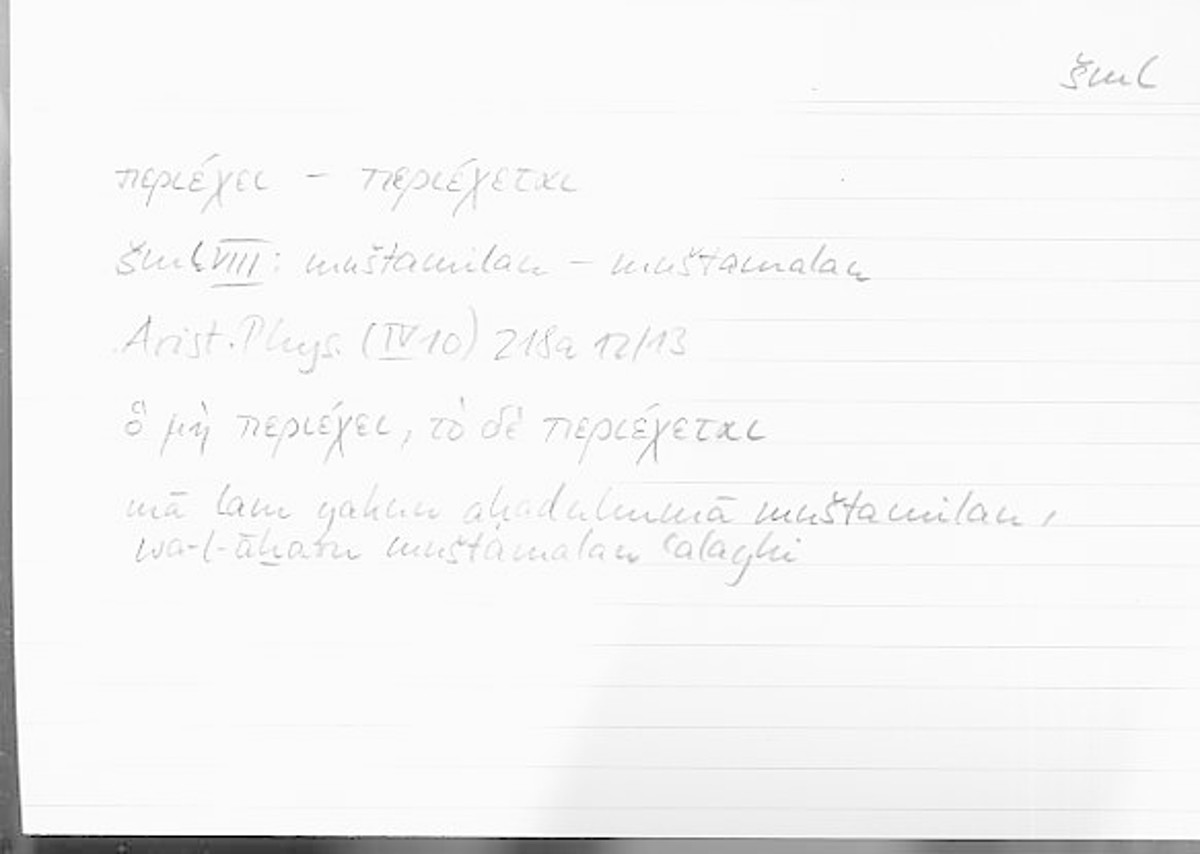 šml
περιέχει – περιέχεται
šml VIII: muštamilan – muštamalan
Arist. Phys. (IV 10) 218a 12/13
ὃ μὴ περιέχει, τὸ δὲ περιέχεται
mā lam yakun aḥaduhumā muštamilan,
wa-l-āḫaru muštamalan ʿalayhi